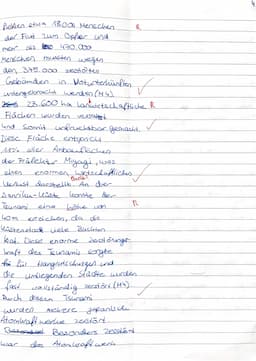 4
fielen etwa 18000 Menschen R
der Flut zum Opfer und
mehr als 470.000
Menschen mussten wegen
den 375.000 zerstörten
Gebäuden in Notunterkünften
untergebracht werden (M4).
23.600 ha landwirtschaftliche R
Flächen wurden versalzt
und somit unfruchtbar gemacht.
Diese Fläche entspricht
der Anbauflächen
der Präfektur Miyagi, was
einen enormen wirtschaftlichen
Verlust darstellt. An der
Sanriku-Küste konnte der
Tsunami eine Höhe von R
40m erreichen, da die
Küstenstadt viele Buchten
hat. Diese enorme Zerstörungs-
kraft des Tsunamis sorgte
für Hangrutschungen und
die umliegenden Städte wurden
fast vollständig zerstört (M4)
Durch diesen Tsunami
wurden mehrere japanische
Atomkraftwerke zerstört.
Besonders zerstört
war das Atomkraftwerk